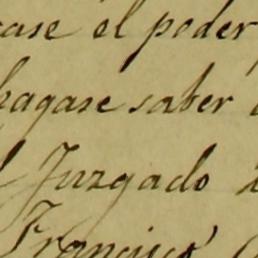 case el poder
hagase saber
Juzgado
Francisco